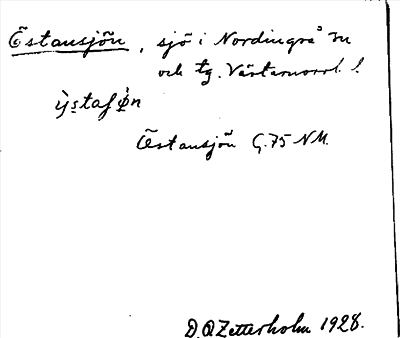 Östansjön, sjö i Nordingrå sn
och tg. Västernorrl. l.
Östansjön G.75 NM.
D.O Zetterholm 1928.